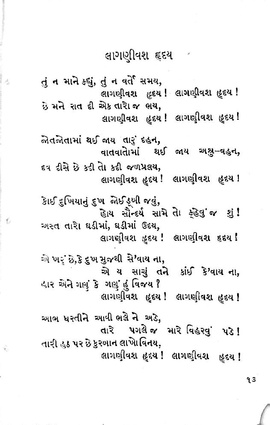 લાગણીવશ હૃદય
તું ન માને કહ્યું, તું ન વર્તે સમય,
લાગણીવશ હૃદય! લાગણીવશ હૃદય!
છે મને રાત દી એક તારો જ ભય,
લાગણીવશ હૃદય! લાગણીવશ હૃદય!
જોતજોતામાં થઈ જાય તારું દહન,
વાતવાતોમાં થઈ જાય અશ્રુ-વહન,
દવ દીસે છે કદી તો કદી જળપ્રલય,
લાગણીવશ હૃદય! લાગણીવશ હૃદય!
કોઈ દુખિયાનું દુખ જોઈ ડૂબી જવું,
હોય સૌન્દર્ય સામે તો કહેવું જ શું!
અસ્ત તારો ઘડીમાં, ઘડીમાં ઉદય,
લાગણીવશ હૃદય! લાગણીવશ હૃદય!
એ ખરું છે, કે દુખ મુજથી સે'વાય ના,
એ ય સાચું તને કાંઈ કે'વાય ના,
હાર એને ગણું કે ગણું હું વિજય?
લાગણીવશ હૃદય! લાગણીવશ હૃદય!
આભ ધરતીને આવી ભલે ને અડે,
તારે પગલે જ મારે વિહરવું પડે!
તારી હઠ પર છે કુરબાન લાખો વિનય,
લાગણીવશ હૃદય! લાગણીવશ હૃદય
૧૩